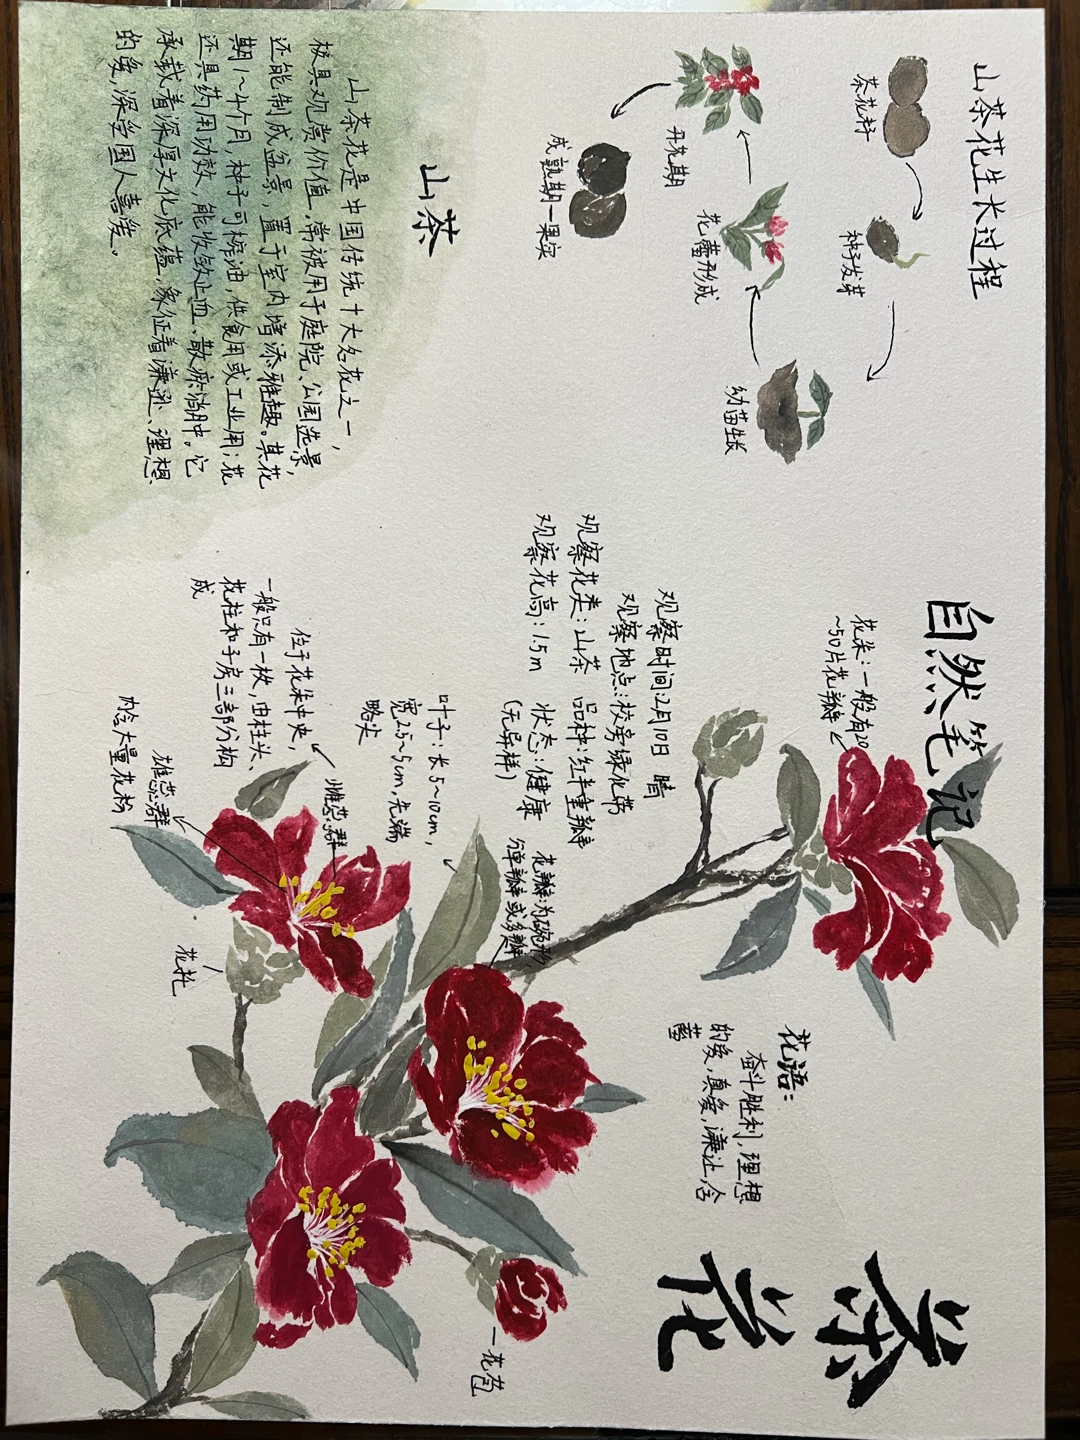 自然笔记
茶
花
山茶花生长过程
茶花籽
种子发芽
幼苗生长
花蕾形成
开花期
成熟期一果实
山茶
山茶花是中国传统十大名花之一,
极具观赏价值.常被用于庭院、公园造景,
还能制成盆景,置于室内增添雅趣。其花
期1~4个月,种子可榨油,供食用或工业用;花
还具药用功效,能收敛止血、散瘀消肿。它
承载着深厚文化底蕴,象征着谦逊、理想
的爱,深受国人喜爱。
花朵:一般有20
~50片花瓣
观察时间:2月10日 晴
观察地点:校旁绿化带
观察花类:山茶 品种:红半重瓣
观察花高:1.5m 状态:健康
(无异样)
花瓣:为碗形
分单瓣或多瓣
叶子:长5~10cm,
宽2.5~5cm,先端
略尖
雌蕊群
位于花朵中央,
一般只有一枚,由柱头、
花柱和子房三部分构
成
雄蕊群
内含大量花粉
花托
花语:
奋斗胜利,理想
的爱,真爱,谦让,含
蓄
一花苞